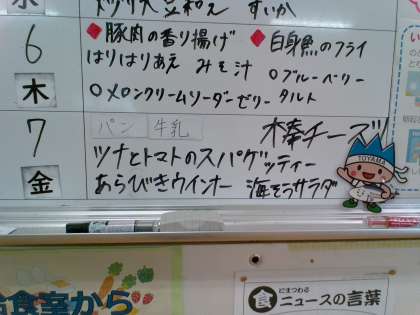 水 ナッツ大豆和え すいか
6 ◆豚肉の香り揚げ ◆白身魚のフライ
はりはりあえ みそ汁 ○ブルーベリー
木 ○メロンクリームソーダーゼリー タルト
7 パン 牛乳 木棒チーズ
ツナとトマトのスパゲッティー
金 あらびきウインナー 海そうサラダ
TOYAMA
給食室から
食 にまつわる
ニュースの言葉